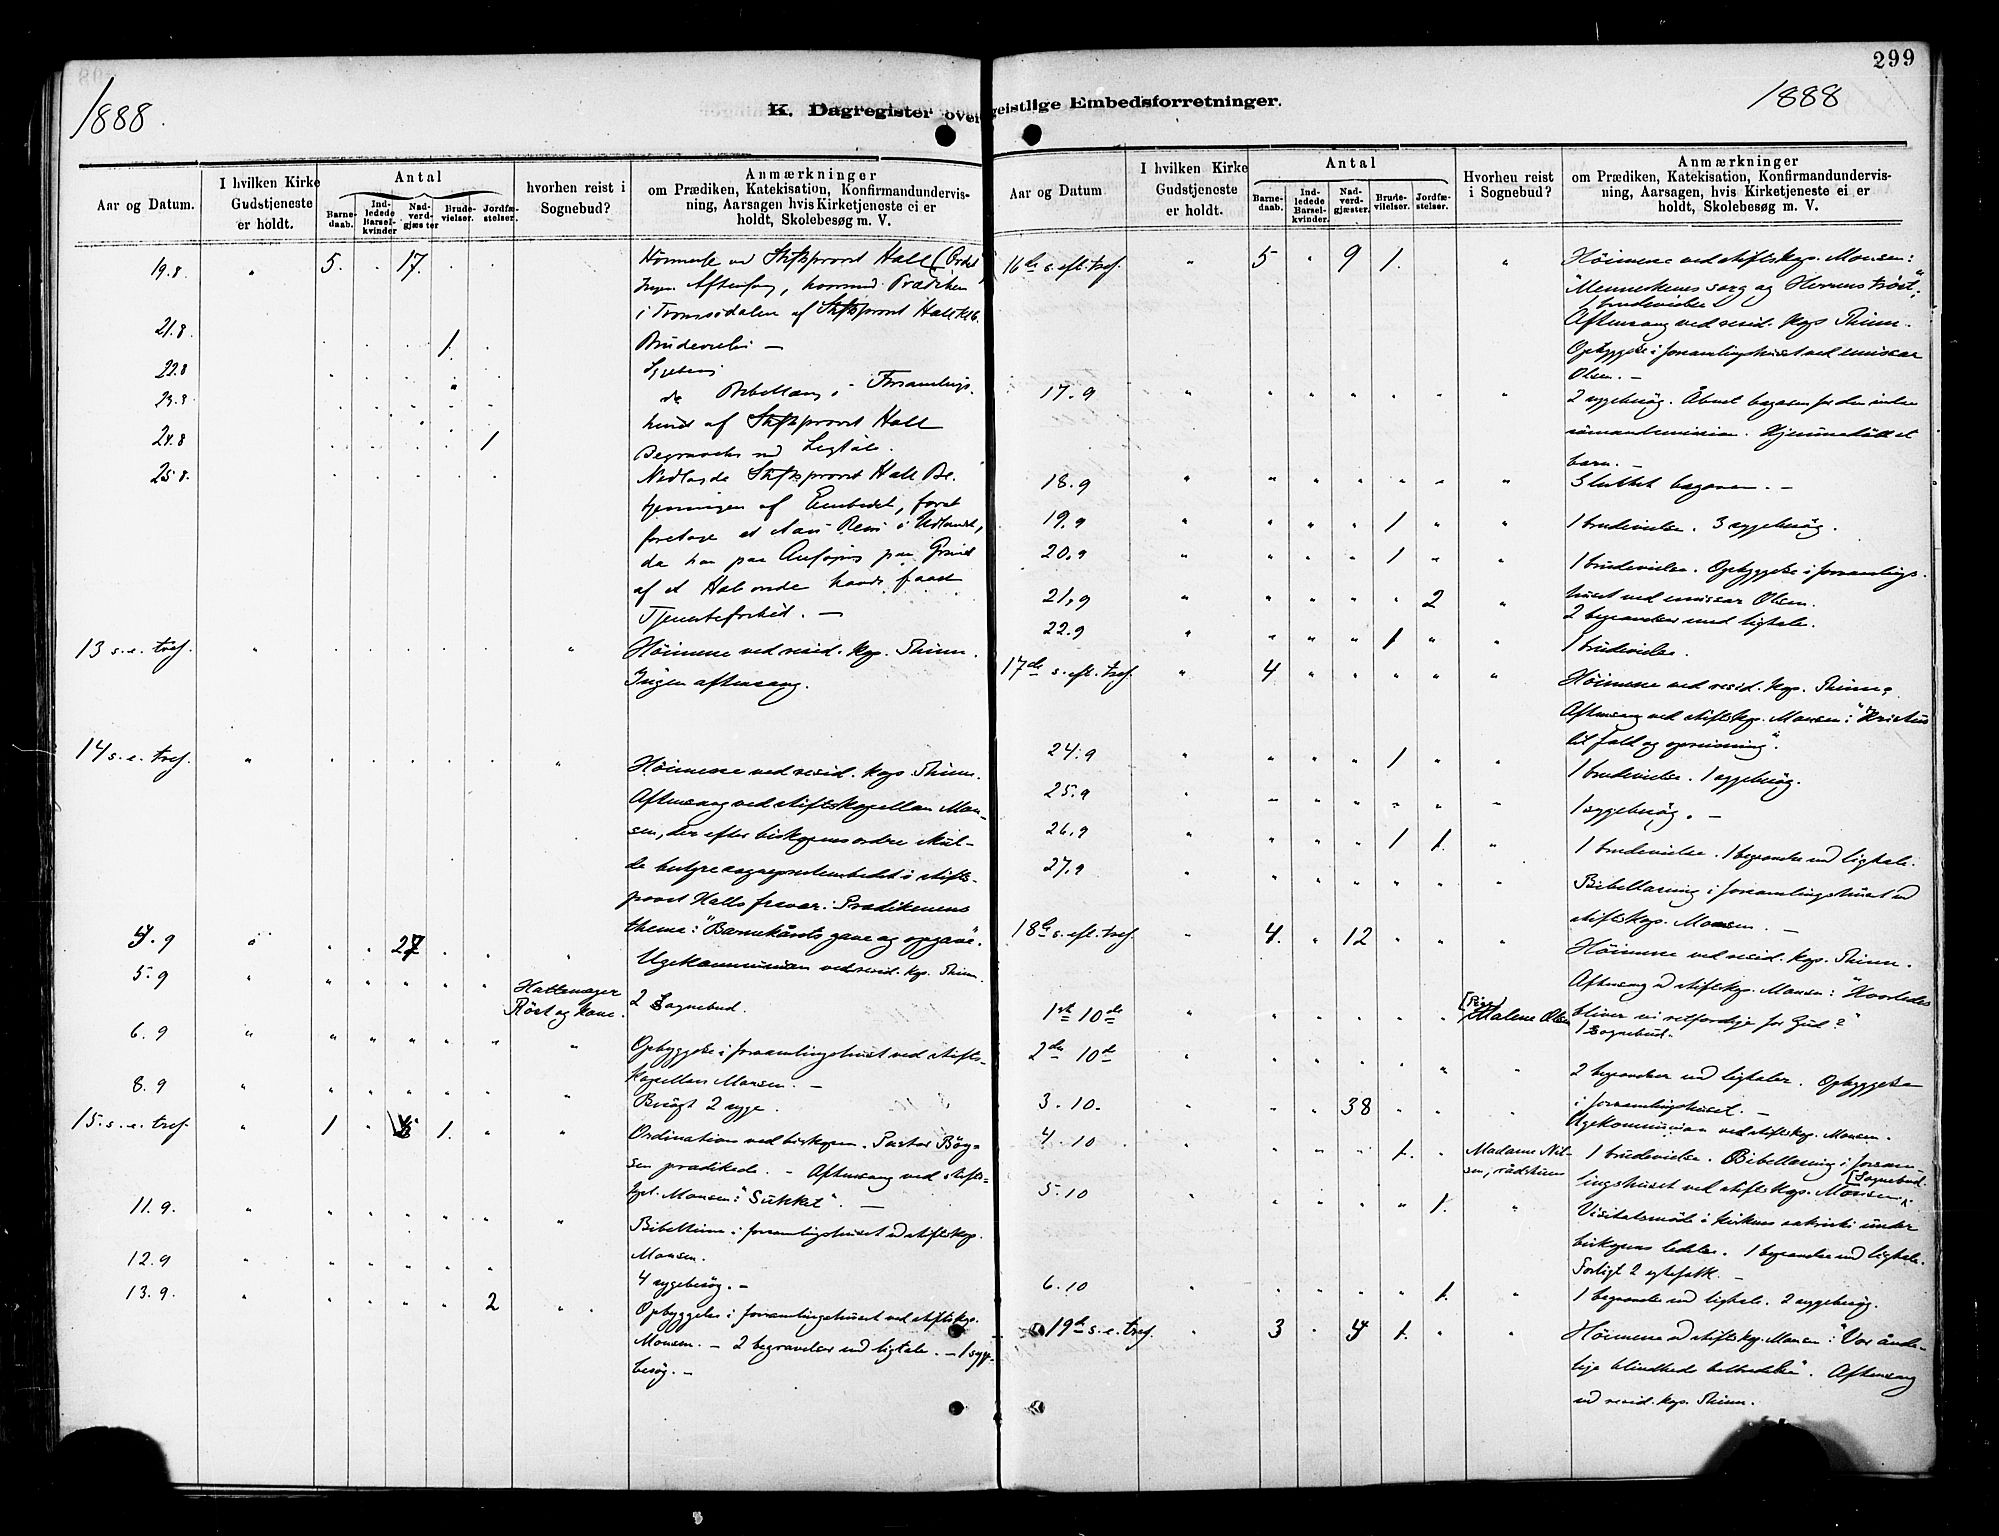 299
1888.
1888
K. Dagregister over geistlige Embedsforretninger.
Aar og Datum.
I hvilken Kirke Gudstjeneste er holdt.
Antal
Barnedaab.
Indledede Barselkvinder
Nadverdgjæster
Brudevielser.
Jordfæstelser.
hvorhen reist i Sognebud?
Anmærkninger
om Prædiken, Katekisation, Konfirmandundervisning, Aarsagen hvis Kirketjeneste ei er holdt, Skolebesøg m. V.
19.8 " 5. . 17. . . Høimesse ved Stiftsprovst Hall
Ingen Aftensang, hvorimod Prædiken
i Tromsødalen af Stiftsprovst Hall Kl 6.
21.8 . . . 1. . Brudevielse —
22.8 . . . . . Sygebesøg
23.8 . . . " . do Bibellæsn. i Forsamlings
huset af Stiftsprovst Hall
24.8 . . . . 1 Begravelse med Ligtale.
25.8 . . . . . Nedlagde Stiftsprovst Hall Be
tjeningen af Embedet, for at
foretage et Aars Reise i Udlandet,
da han paa Ansøgning paa Grund
af et Halsonde havde faaet
Tjenestefrihed. —
13 s. e. tref. " . . . . . " Høimesse ved resid. kap. Thinn.
Ingen aftensang.
14 s. e. tref. " . . . . . " Høimesse ved resid. kap. Thinn.
Aftensang ved stiftskapellan Mon-
sen, der efter biskopens ordre skul-
de bestyre sogneprestembedet i stifts-
provst Halls fravær. Prædikenens
thema: "Barnekårets gave og opgave".
4.9 " . . 27 . . " Ugekommunion ved resid. kap. Thinn.
5.9 " " " " " " Hattemager
Røst og kone. 2 Sognebud.
6.9 " " " " " " " Opbyggelse i forsamlingshuset ved stifts-
kapellan Monsen. —
8.9 " " " " " " " Besøgt 2 syge.
15. s. e. tref. " 1 " 1. " " Ordination ved biskopen. Pastor Bøy-
sen prædikede. — Aftensang ved stifts-
kpl. Monsen: "Sukket". —
11.9. " " " " " " " Bibeltime i forsamlingshuset v. stiftskap.
Monsen.
12.9 " " " " " " 4 sygebesøg. —
13.9. " " " " " 2 " Opbyggelse i forsamlingshuset ved stiftskap.
Monsen. — 2 begravelser med ligtale. — 1 syge-
besøg. —
Aar og Datum
I hvilken Kirke Gudstjeneste er holdt.
Antal
Barnedaab.
Indledede Barselkvinder.
Nadverdgjæster.
Brudevielser.
Jordfæstelser.
Hvorhen reist i Sognebud?
Anmærkninger
om Prædiken, Katekisation, Konfirmandundervisning, Aarsagen, hvis Kirketjeneste ei er holdt, Skolebesøg m. V.
16de s. eft. tref. " 5 " 9 1. " Høimesse ved stiftskap. Monsen:
"Menneskenes sorg og Herrens trøst";
1 brudevielse
Aftensang ved resid. kap. Thinn.
Opbyggelse i forsamlingshuset ved emissær
Olsen. —
17.9 " " " " " " " 2 sygebesøg. Åbnet bazaren for den indre
sømandsmission. Hjemmedøbt et
barn. —
18.9 " " " " " " " Sluttet bazaren. —
19.9 " " " " 1 " " 1 brudevielse. 3 sygebesøg.
20.9 " " " " 1 " " 1 brudevielse. Opbyggelse i forsamlings-
huset ved emissær Olsen.
21.9 " " " " " 2 " 2 begravelser med ligtale.
22.9 " " " " 1. " " 1 brudevielse.
17de s. eft. tref. " 4 " " " " " Høimesse ved resid. kap. Thinn.
Aftensang ved stiftskap. Monsen: "Kristus
til fald og opreisning".
24.9 " " " " 1 " " 1 brudevielse. 1 sygebesøg.
25.9 " " " " " " " 1 sygebesøg. —
26.9 " " " " 1 1. " 1 brudevielse. 1 begravelse ved ligtale.
27.9 " " " " " " " Bibellæsning i forsamlingshuset v
stiftskap. Monsen. —
18de s. eft. tref. " 4. " 12 " " " Høimesse ved resid. kap. Thinn.
Aftensang v stiftskap. Monsen: "Hvorledes
bliver vi retfærdige for Gud?"
1ste 10de " " " " " " [Pige] Malene Olsen 1 Sognebud.
2den 10de " " " " " " " 2 begravelser ved ligtaler. Opbyggelse
i forsamlingshuset. —
3.10. " " " 38 " " " Ugekommunion ved stiftskap. Monsen.
4.10 " " " " 1. " Madame Nil-
sen, rådstuen 1 brudevielse. Bibellæsning i forsam-
lingshuset ved stiftskap. Monsen. [Sognebud
5.10 " " " " " 1. " Visitatsmøde i kirkens sakristi under
biskopens ledelse. 1 begravelse ved ligtale.
Forligt 2 egtefolk. —
6.10 " " " " " 1. " 1 begravelse ved ligtale. 2 sygebesøg.
19de s. e. tref. " 3 " 4 1. " " Høimesse v stiftskap. Monsen: "Vor ånde-
lige blindhed helbredelse". Aftensang
ved resid. kap. Thinn.